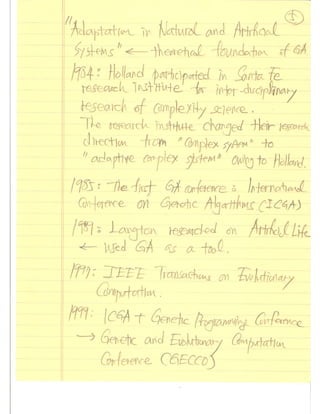 5
"Adaptation in Natural and Artificial
Systems" ← theoretical foundation of GA
1984: Holland participated in Santa Fe
research Institute for inter-disciplinary
research of complexity science.
The research institute changed their research
direction from "complex system" to
"adaptive complex system" owing to Holland.
1985: The first GA conference: International
Conference on Genetic Algorithms (ICGA)
1989: Langton researched on Artificial Life
← used GA as a tool.
1997: IEEE Transactions on Evolutionary
Computation.
1999: ICGA + Genetic Programming Conference
→ Genetic and Evolutionary Computation
Conference (GECCO)